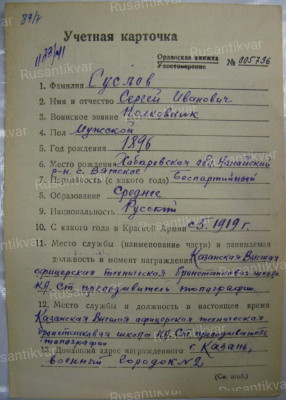 89/7
1177/41
Учетная карточка
Орденская книжка
Удостоверение № 005736
1. Фамилия Суслов
2. Имя и отчество Сергей Иванович
3. Воинское звание Полковник
4. Пол Мужской
5. Год рождения 1896
6. Место рождения Хабаровская обл.
р-н. с. Вятское
7. Партийность (с какого года) Беспартийный
8. Образование Среднее
9. Национальность Русский
10. С какого года в Красной Армии с 5. 1919 г.
11. Место службы (наименование части) и занимаемая
должность в момент награждения Казанская Высшая
офицерская техническая бронетанковая школа
К.А. Ст. преподаватель топографии.
12. Место службы и должность в настоящее время
Казанская Высшая офицерская техническая
бронетанковая школа К.А. Ст. преподаватель
топографии
13. Домашний адрес награжденного г. Казань,
Военный городок №2,
(См. на об.)
Rusantikvar